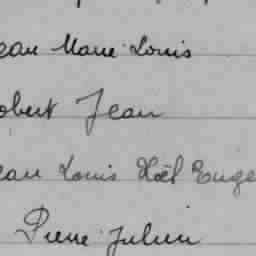 ean Marie Louis
obert Jean
ean Louis Noël Euge
Pierre Julien